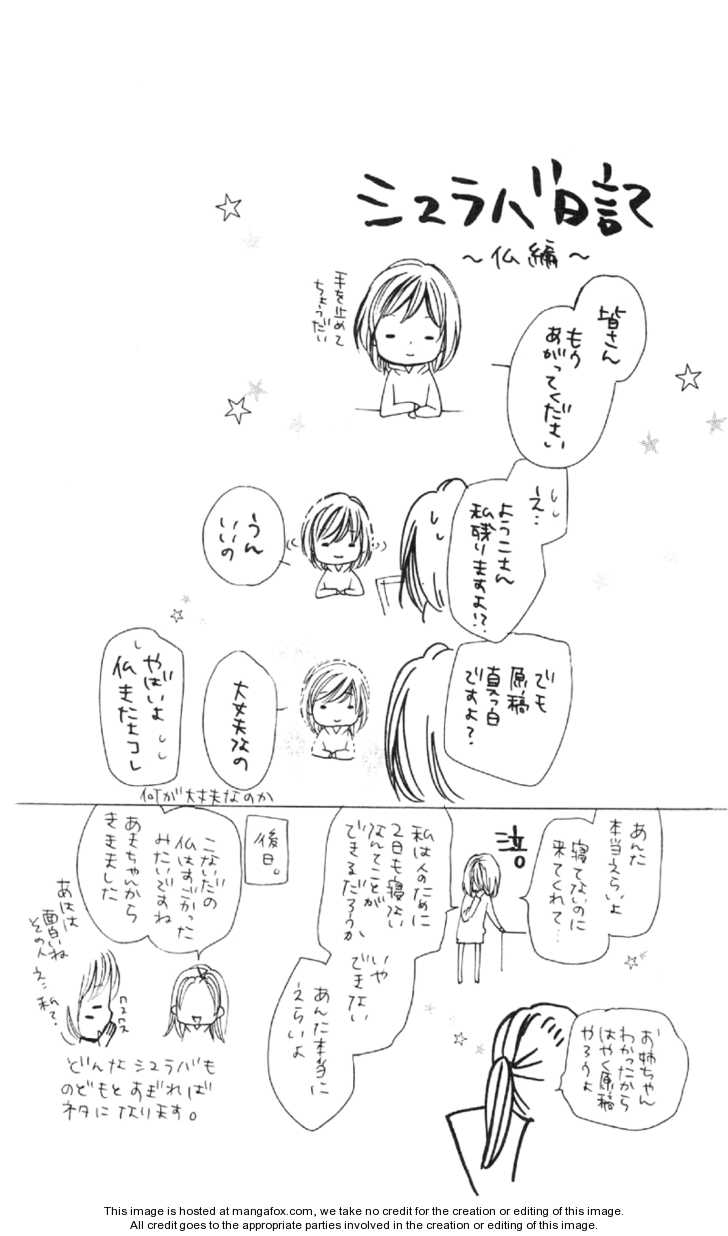 シュラバ日記
～仏編～
皆さん
もう
あがってください
手を止めて
ちょうだい
え…
ようこさん
私残りますよ!?
うん
いいの
でも
原稿
真っ白
ですよ?
大丈夫なの
何が大丈夫なのか
やばいよ
仏きたよコレ
あんた
本当えらいよ
寝てないのに
来てくれて…
泣。
お姉ちゃん
わかったから
はやく原稿
やろうよ
私は人のために
2日も寝ない
なんてことが
できるだろうか
いや
できない
あんた本当に
えらいよ
後日。
こないだの
仏はすごかった
みたいですね
あきちゃんから
ききました
あはは
面白いね
その人
え…私?
クスクス
どんなシュラバも
のどもとすぎれば
ネタになります。
This image is hosted at mangafox.com, we take no credit for the creation or editing of this image.
All credit goes to the appropriate parties involved in the creation or editing of this image.